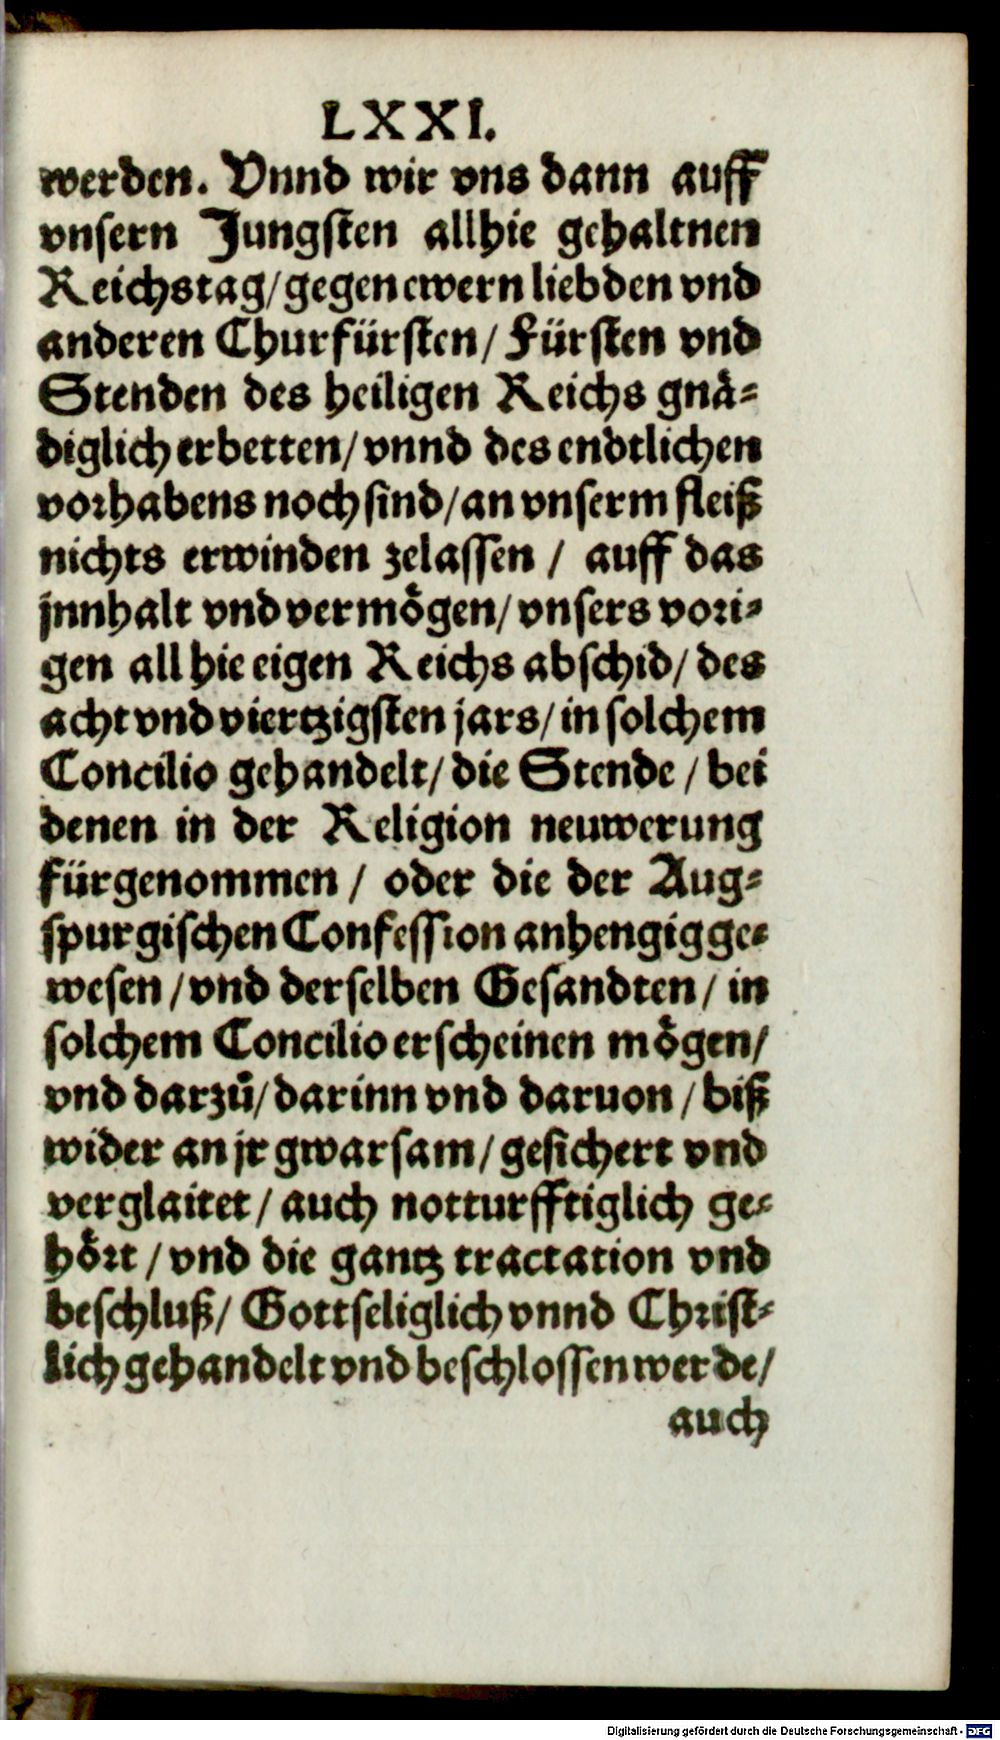 LXXI.
werden. Vnnd wir vns dann auff
vnsern Jungsten allhie gehaltnen
Reichstag/ gegen ewern liebden vnd
anderen Churfürsten/ Fürsten vnd
Stenden des heiligen Reichs gnä-
diglich erbetten/ vnnd des endtlichen
vorhabens noch sind/ an vnserm fleiß
nichts erwinden zelassen / auff das
jnnhalt vnd vermögen/ vnsers vori-
gen all hie eigen Reichs abschid/ des
acht vnd viertzigsten jars/ in solchem
Concilio gehandelt/ die Stende / bei
denen in der Religion neuwerung
fürgenommen / oder die der Aug-
spurgischen Confession anhengig ge-
wesen / vnd derselben Gesandten/ in
solchem Concilio erscheinen mögen/
vnd darzů/ darinn vnd daruon / biß
wider an jr gwarsam/ gesichert vnd
verglaitet/ auch notturfftiglich ge-
hört / vnd die gantz tractation vnd
beschluß/ Gottseliglich vnnd Christ-
lich gehandelt vnd beschlossen werde/
auch
Digitalisierung gefördert durch die Deutsche Forschungsgemeinschaft - DFG